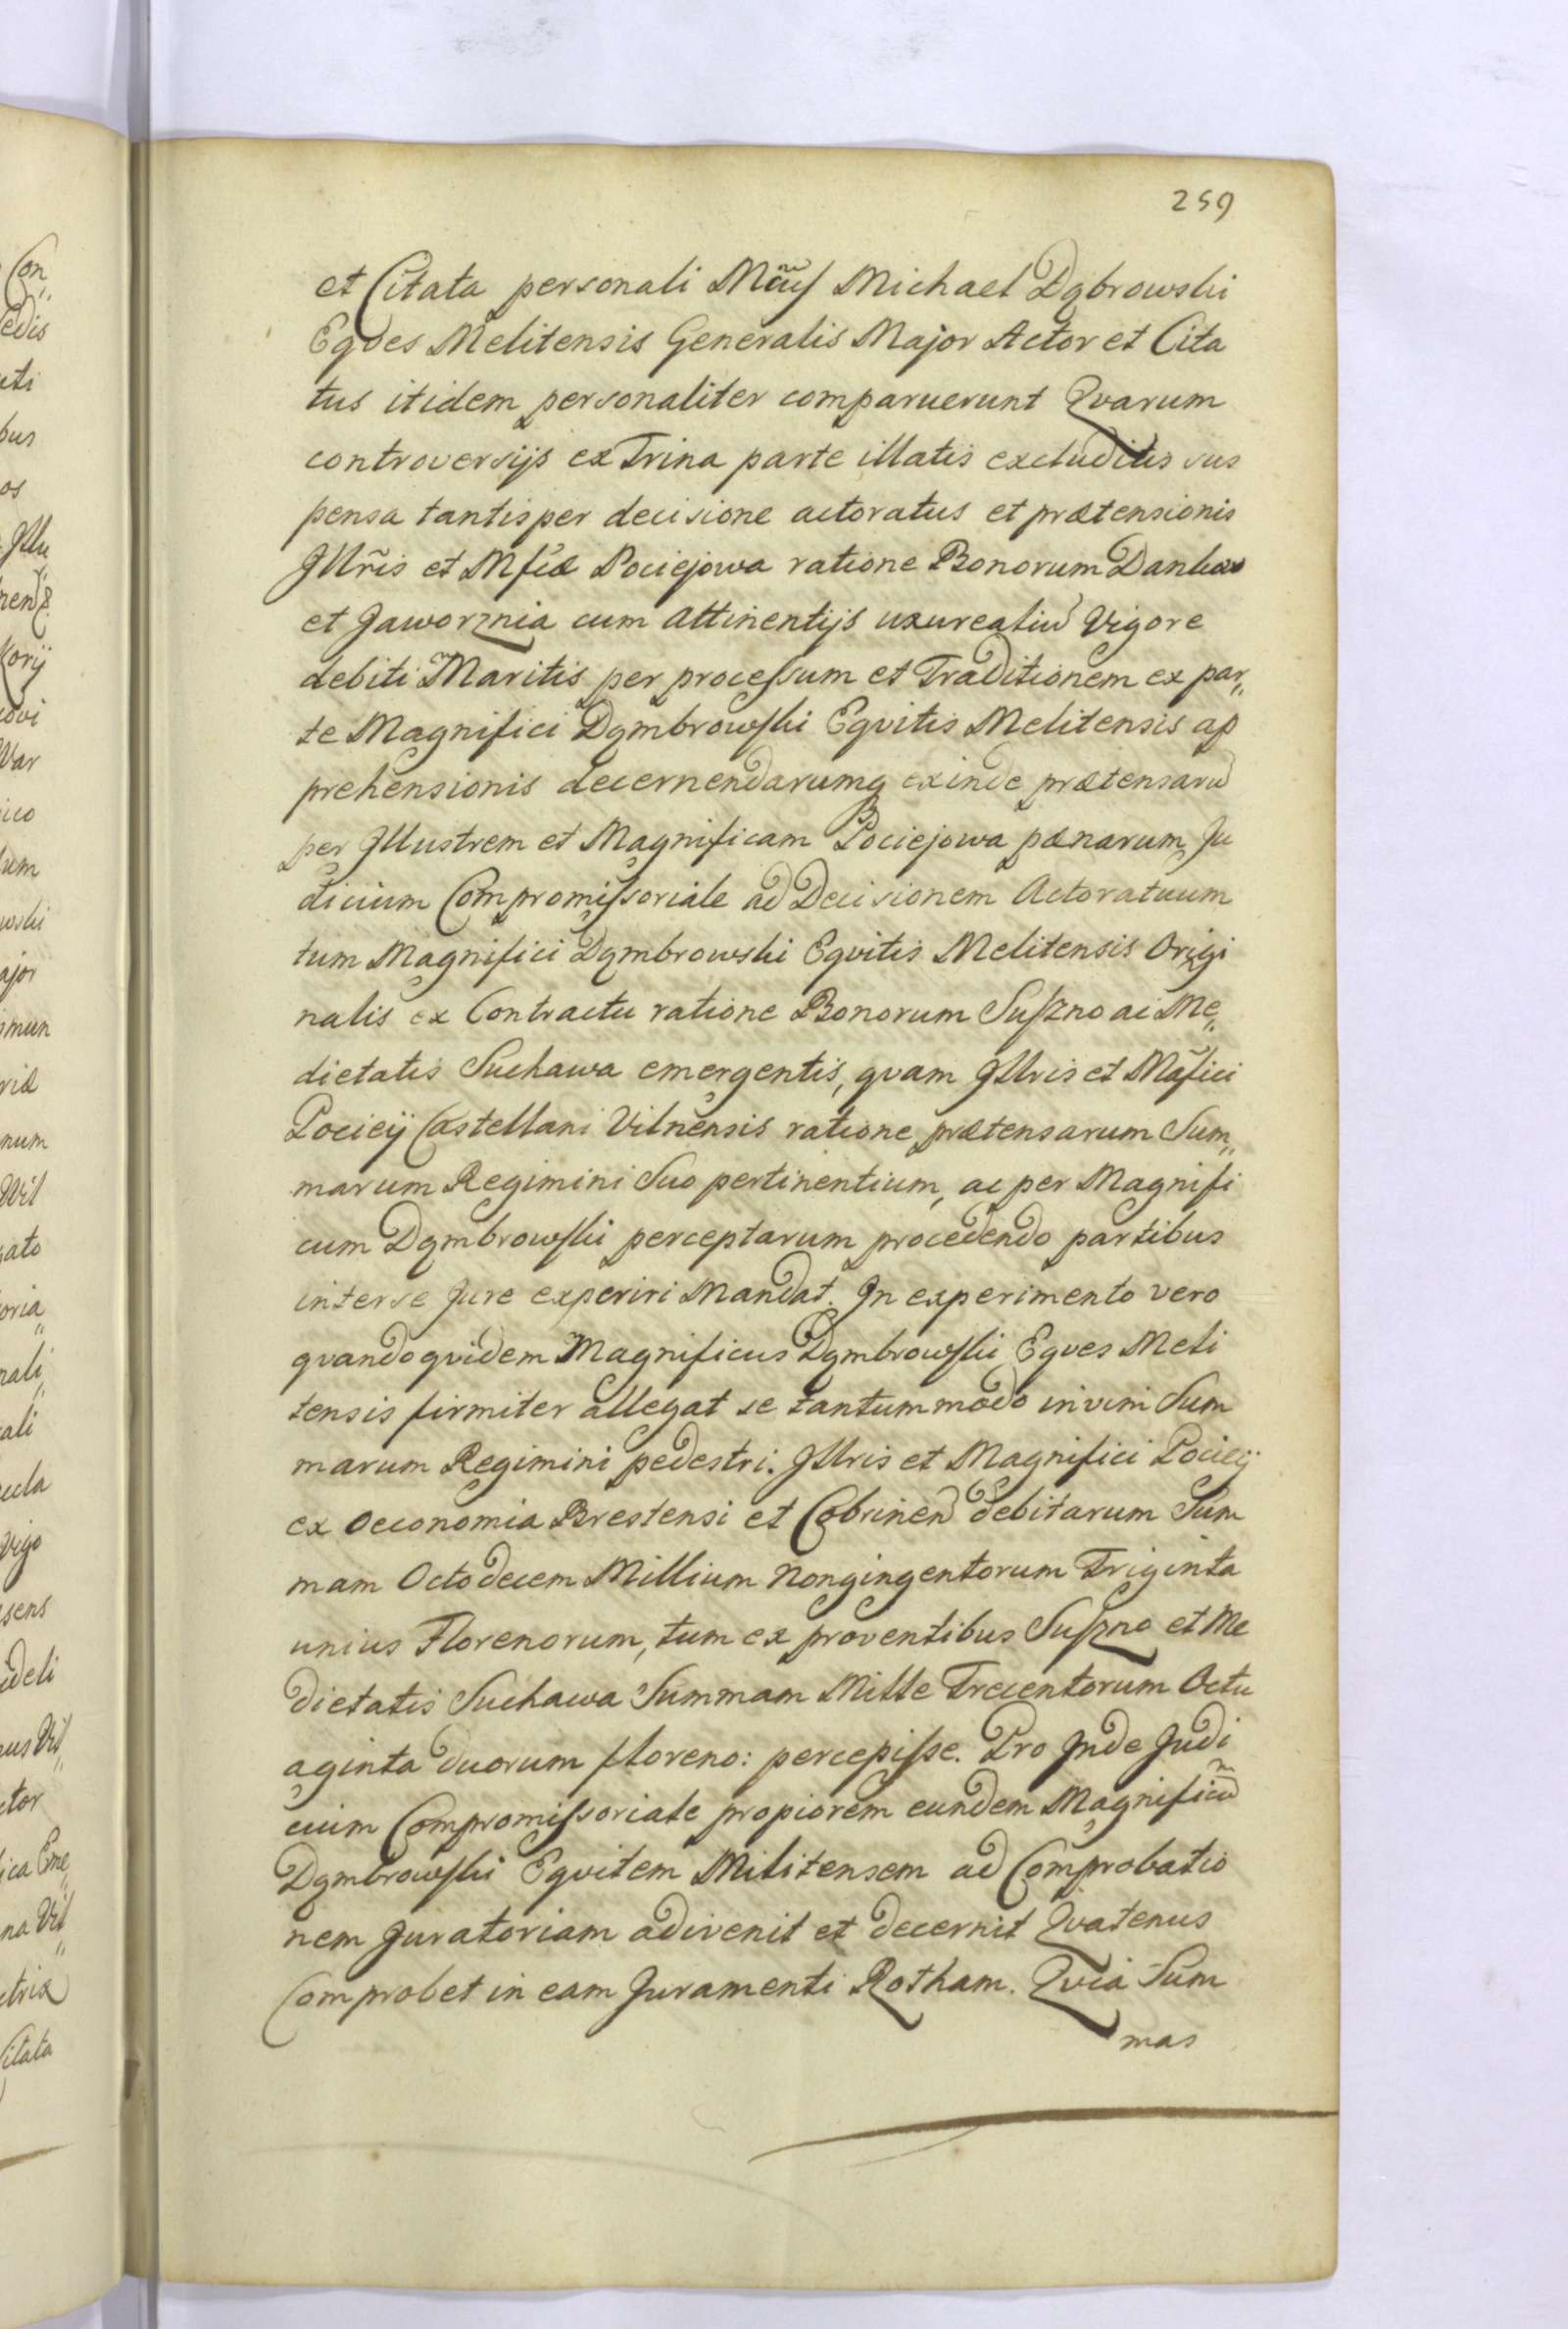 259
et Citata personali Mc̃us Michael Dąbrowski
Eqves Melitensis Generalis Major Actor et Cita
tus itidem personaliter comparuerunt Qvarum
controversijs ex Trina parte illatis exclusitis sus
pensa tantisper decisione actoratus et prætensionis
Jllr̃is et Mfcæ Pociejowa ratione Bonorum
et Jaworznia cum attinentijs Vigore
debiti Maritis per processum et Traditionem ex par„
te Magnifici Dąmbrowski Eqvitis Melitensis ap
prehensionis decernendarumq exinde prætensaru
per Jllustrem et Magnificam Pociejowa pænarum Ju
dicium Compromissoriale ad Decisionem Actoratuum
tum Magnifici Dąmbrowski Eqvitis Melitensis Origi
nalis ex Contractu ratione Bonorum Suszno ac Me„
dietatis Suchawa emergentis, qvam Jllris et Mãfici
Pocieÿ Castellani Vilnensis ratione prætensarum Sum„
marum Regimini Suo pertinentium, ac per Magnifi
cum Dąmbrowski perceptarum procedendo partibus
inter se Jure experiri Mandat. Jn experimento vero
qvandoqvidem Magnificus Dąmbrowski Eqves Meli
tensis firmiter allegat se tantummodo in vim Sum
marum Regimini pedestri. Jllris et Magnifici Pocieÿ
ex Oeconomia Brestensi et Cobrinen debitarum Sum
mam Octodecem Millium Nongingentorum Triginta
unius Florenorum, tum ex proventibus Suszno et Me
dietatis Suchawa Summam Mille Trecentorum Octu
aginta duorum floreno: percepisse. Pro Jnde Judi
cium Compromissoriale propiorem eundem Magnificu
Dąmbrowski Eqvitem Militensem ad Comprobatio
nem Juratoriam adivenit et decernit Qvatenus
Comprobet in eam Juramenti Rotham. Qvia Sum
mas